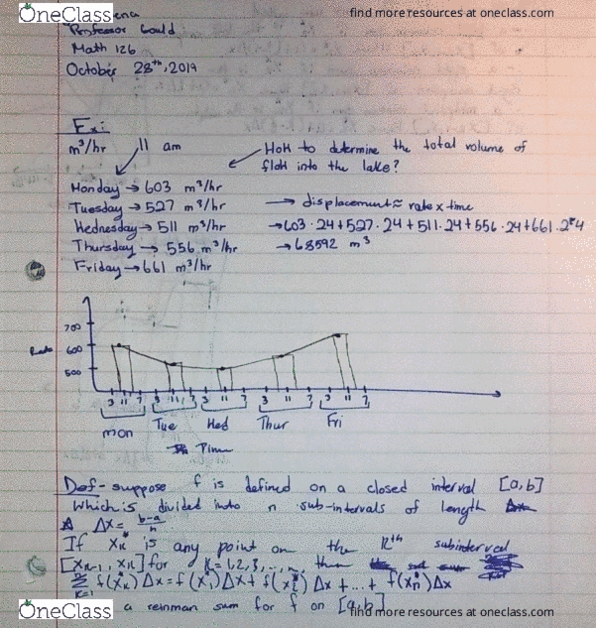 OneClass
find more resources at oneclass.com
ena
Professor Gould
Math 126
October 28th, 2019
Ex:
m³/hr 11 am
How to determine the total volume of
flow into the lake?
Monday → 603 m³/hr
Tuesday → 527 m³/hr → displacement ≈ rate x time
Wednesday → 511 m³/hr → 603 · 24 + 527 · 24 + 511 · 24 + 556 · 24 + 661 · 24
Thursday → 556 m³/hr → 68592 m³
Friday → 661 m³/hr
700
Rate 600
500
3 11 7 3 11 7 3 11 7 3 11 7 3 11 7
Mon Tue Wed Thur Fri
Time
Def - suppose f is defined on a closed interval [a,b]
which is divided into n sub-intervals of length
Δx = b-a/n
If xk* is any point on the kth subinterval
[xk-1, xk] for k=1,2,3,...,n, then
Σ f(xk*)Δx = f(x1*)Δx + f(x2*)Δx + ... + f(xn*)Δx
k=1
a reinman sum for f on [a,b]
OneClass
find more resources at oneclass.com